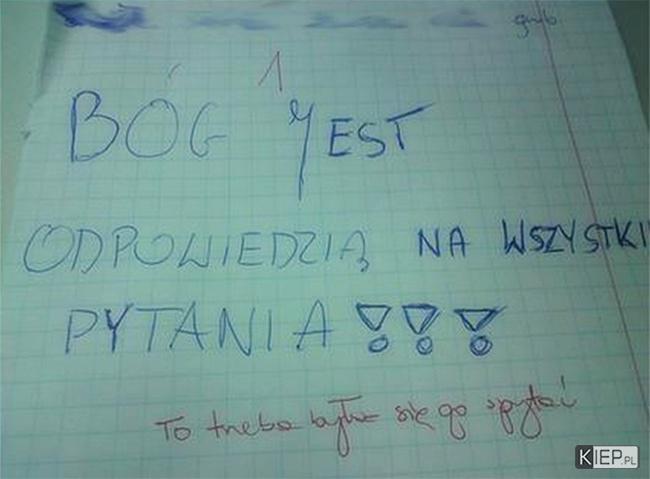 grub
1
BÓG JEST
ODPOWIEDZIĄ NA WSZYSTKI
PYTANIA !!!
To trzeba było się go spytać
KIEP.PL